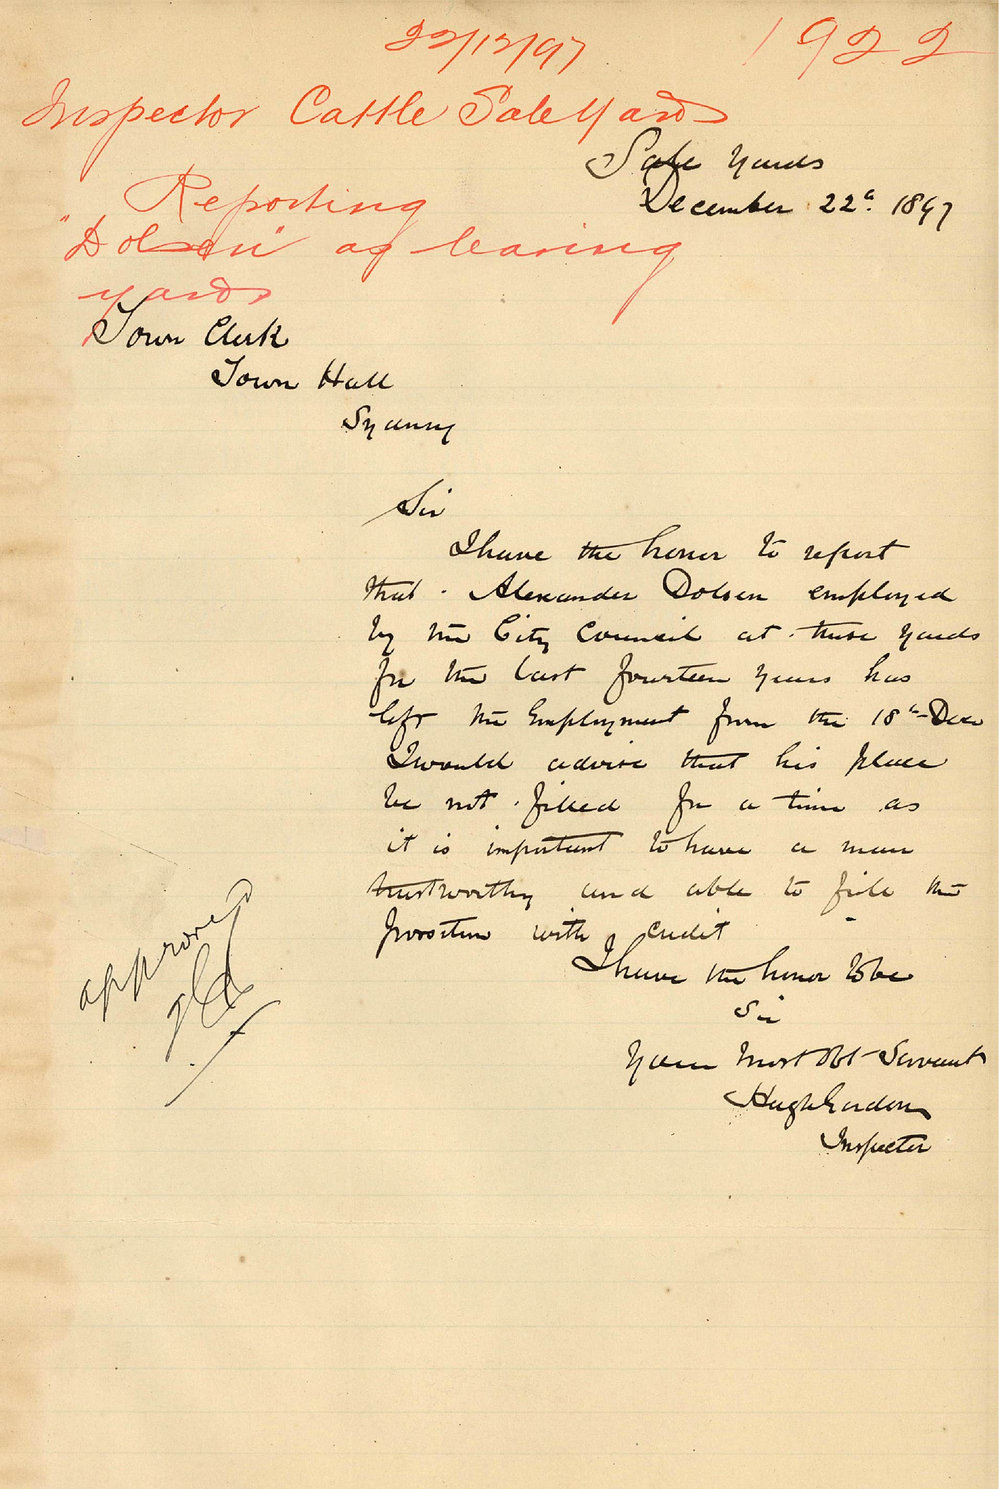 22/12/97
1922
Inspector Cattle Sale Yards
Sale Yards
December 22d. 1897
Reporting
"Dolsen" as leaving
yards
Town Clerk
Town Hall
Sydney
Sir
I have the honor to report
that Alexander Dolsen employed
by the City Council at these yards
for the last fourteen years has
left the Employment from the 18th Dec
I would advise that his place
be not filled for a time as
it is important to have a man
trustworthy and able to fill the
position with credit
I have the honor to be
Sir
Your Most Obt Servant
Hugh Gordon
Inspector
approved